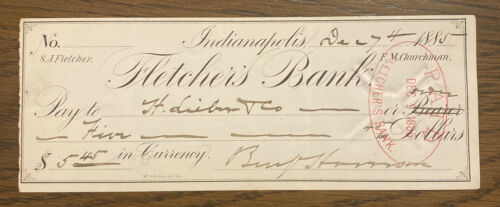 No. Indianapolis, Dec 4 1885
S.J. Fletcher. F.M. Churchman.
Fletcher's Bank
Pay to H. Lieber & Co or Bearer order
Five Dollars
$ 5 45 in Currency. Benj Harrison
PAID
DEC
FLETCHER'S BANK.